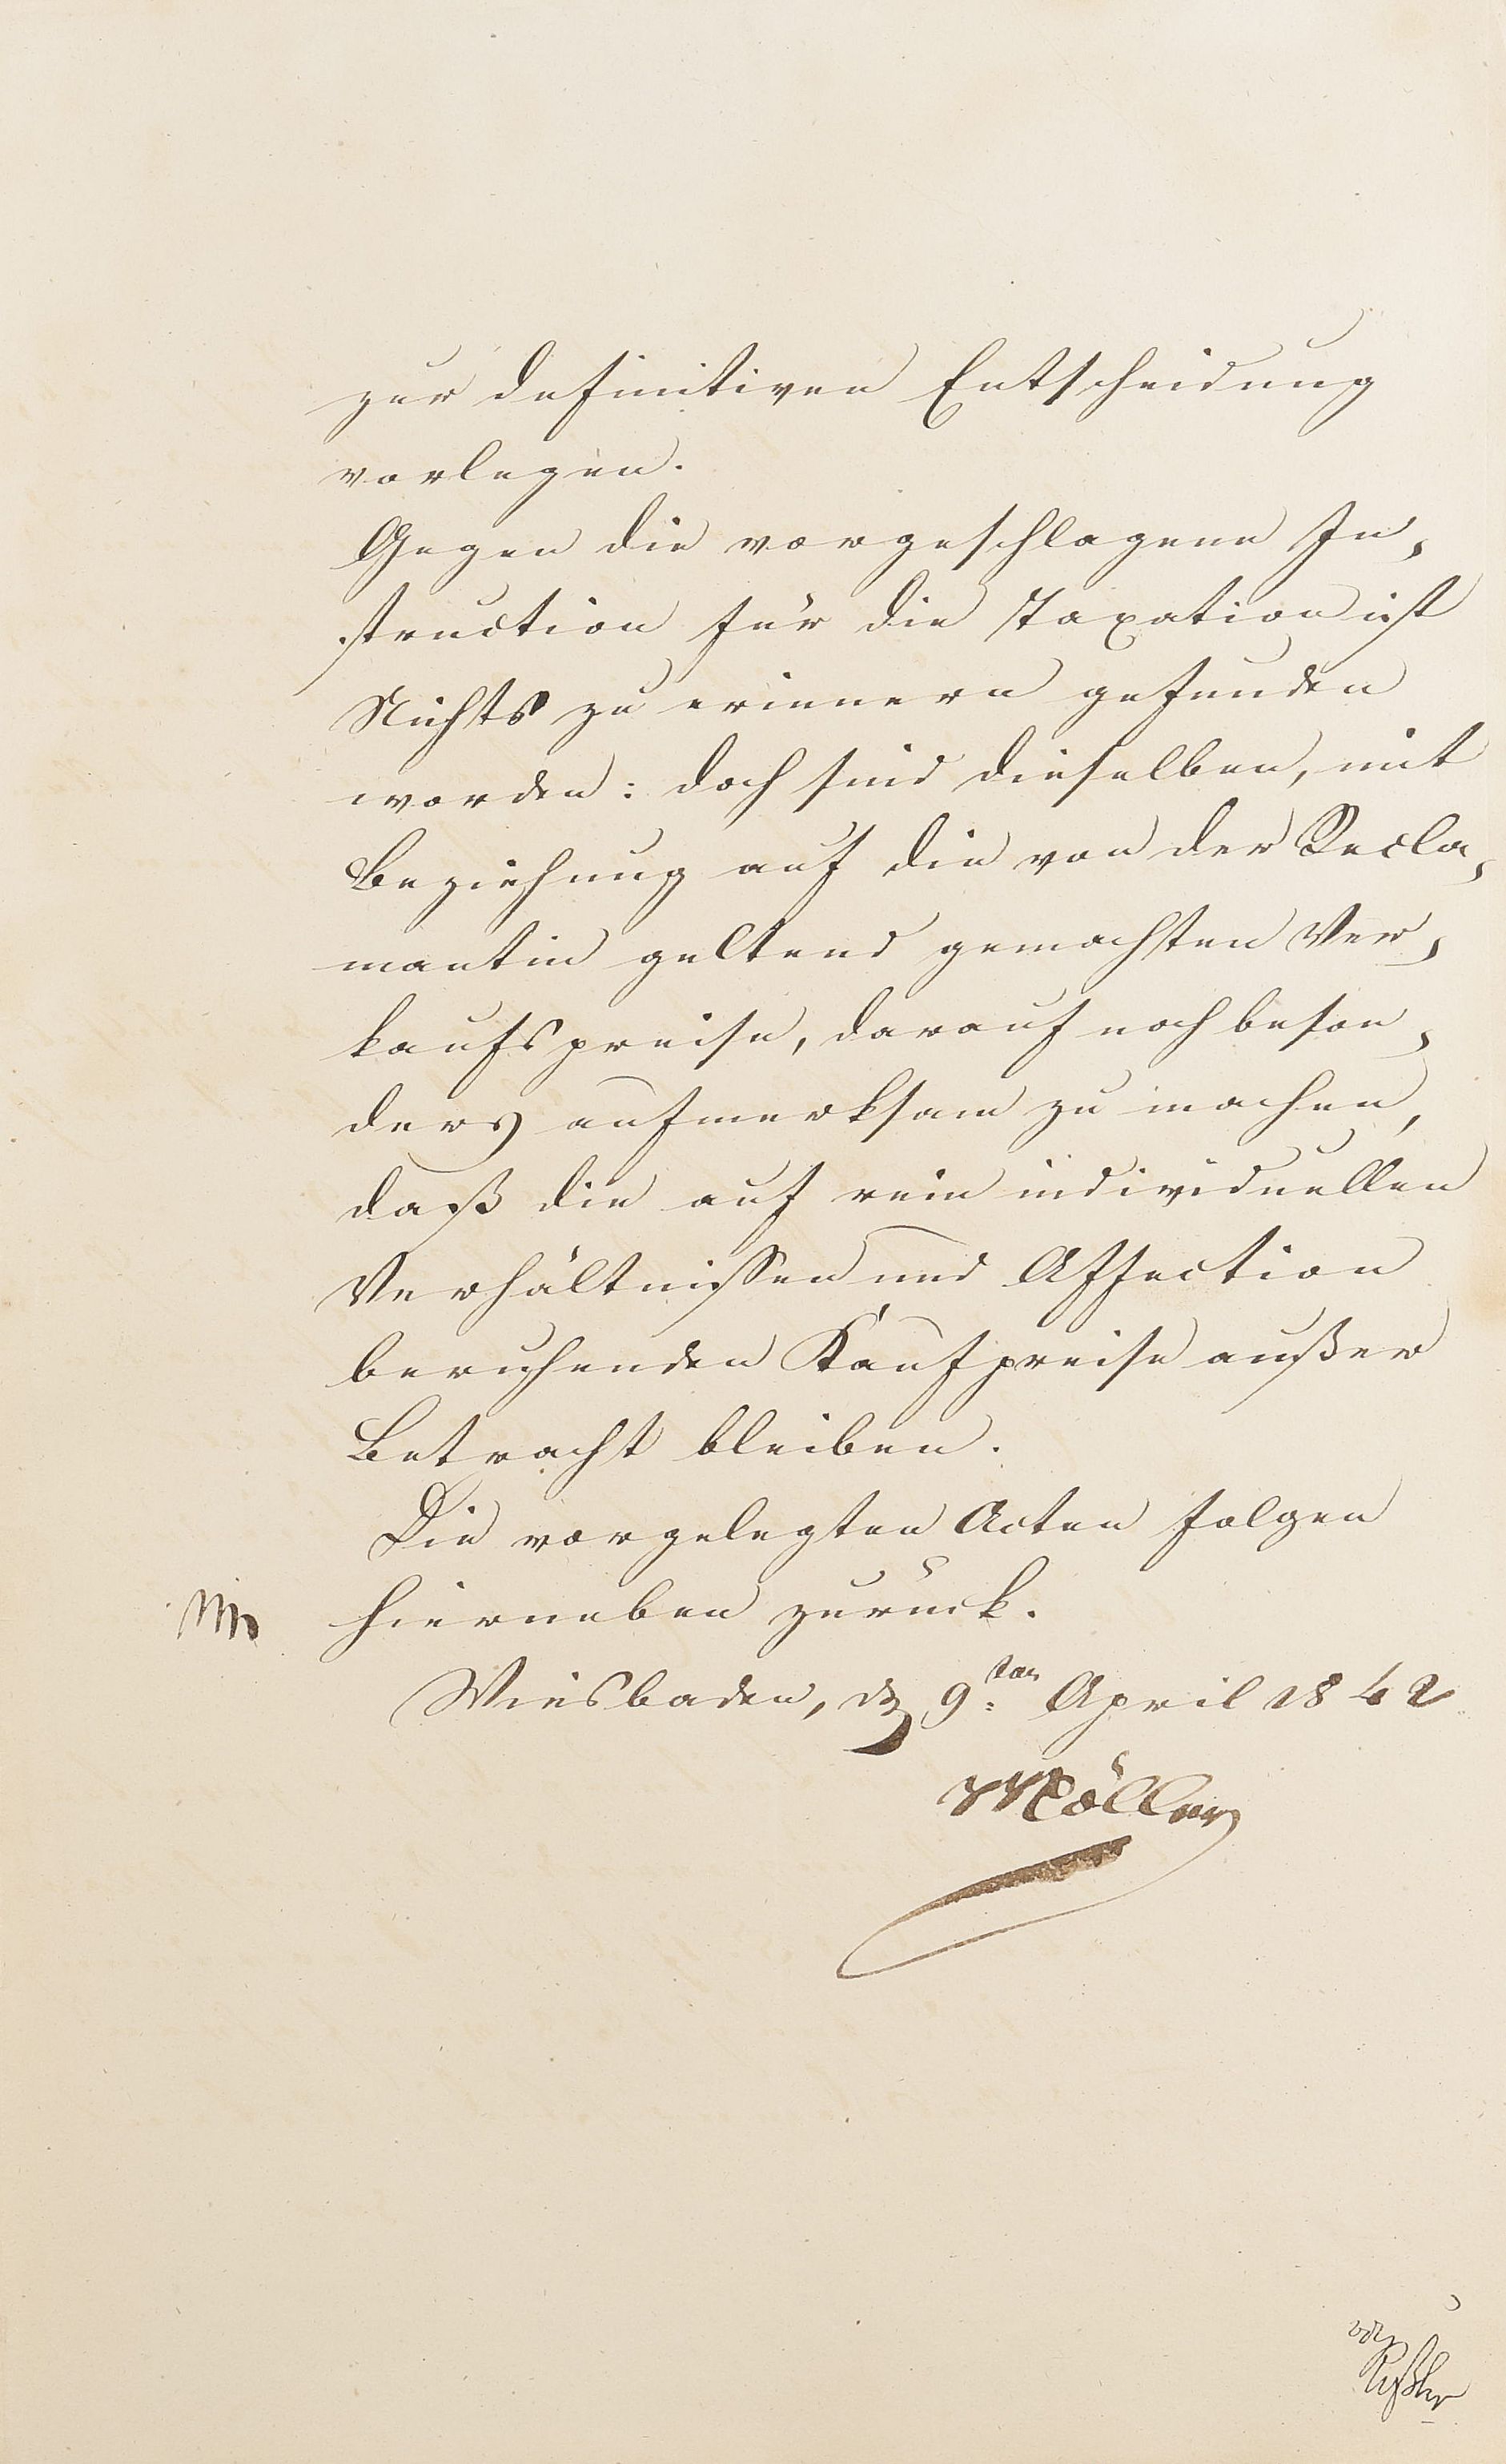 zur definitiven Entscheidung
vorlegen.
Gegen die vorgeschlagene In,
struction für die Taxation ist
Nichts zu erinnern gefunden
worden: doch sind dieselben, mit
Beziehung auf die von der Recla,
mantin geltend gemachten Ver,
kaufspreise, darauf noch beson,
ders aufmerksam zu machen,
daß die auf rein individuellen
Verhältnissen und Affection
beruhenden Kaufpreise außer
Betracht bleiben.
Die vorgelegten Acten folgen
hierneben zurück.
Wiesbaden, den 9ten April 1842
Möller
vdt